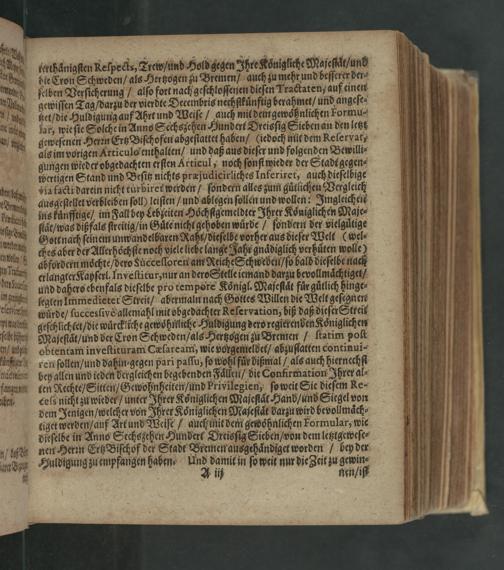 terthänigsten Respects, Trew/und Hold gegen Ihre Königliche Majestät/und
die Cron Schweden/ als Hertzogen zu Bremen/ auch zu mehr und besserer der-
selben Versicherung/ also fort nach geschlossenen diesen Tractaten, auf einen
gewissen Tag/darzu der vierdte Decembris nechstkünftig berahmet/ und angese-
tzet/die Huldigung auf Ahrt und Weise/ auch mit dem gewöhnlichen Formu-
lar, wie sie Solche in Anno Sechszehen Hundert Dreissig Sieben an den letzt
gewesenen Herrn Ertz Bischofen abgestattet haben/ (jedoch mit dem Reservat,
als im vorigen Articulo enthalten/ und daß aus dieser und folgenden Bewilli-
gungen wieder obgedachten ersten Articul, noch sonst wieder der Stadt gegen-
wertigen Stand und Besitz nichts præjudicirliches Inferiret, auch dieselbige
via facti darein nicht turbiret werden/ sondern alles zum gütlichen Vergleich
ausgestellet verbleiben soll) leisten/ und ablegen sollen und wollen: Imgleichen
ins künfftige/ im Fall bey Lebzeiten Höchstgemeldter Ihrer Königlichen Maje-
stät/was dißfals streitig/in Güte nicht gehoben würde/ sondern der vielgütige
Gott nach seinem unwandelbaren Raht/dieselbe vorher aus dieser Welt (wel-
ches aber der Allerhöchste noch viele liebe lange Jahr gnädiglich verhüten wolle)
abfordern möchte/ dero Successoren am Reiche Schweden/so bald dieselbe nach
erlangter Kayserl. Investitur, nur an dero Stelle jemand darzu bevollmächtiget/
und dahero ebenfals dieselbe pro tempore Königl. Majestät für gütlich hinge-
legten Immedietet Streit/ abermaln nach Gottes Willen die Welt gesegnen
würde/ successivè allemahl mit obgedachter Reservation, biß daß dieser Streit
geschlichtet/die würckliche gewöhnliche Huldigung dero regierenden Königlichen
Majestät/und der Cron Schweden/als Hertzogen zu Bremen/ statim post
obtentam investituram Cæsaream, wie vorgemeldet/ abzustatten continui-
ren sollen/und dahin-gegen pari passu, so wohl für dißmal/ als auch hiernechst
bey allen und ieden dergleichen begebenden Fällen/ die Confirmation Ihrer al-
ten Rechte/Sitten/Gewohnheiten/und Privilegien, so weit Sie diesem Re-
cess nicht zu wieder/ unter Ihrer Königlichen Majestät Hand/und Siegel von
dem Jenigen/welcher von Ihrer Königlichen Majestät darzu wird bevollmäch-
tiget werden/auf Art und Weise/ auch mit dem gewöhnlichen Formular, wie
dieselbe in Anno Sechszehen Hundert Dreissig Sieben/von dem letztgewese-
nen Herrn Ertz Bischof der Stadt Bremen ausgehändiget worden/ bey der
Huldigung zu empfangen haben. Und damit in so weit nur die Zeit zu gewin-
A iij nen/ist